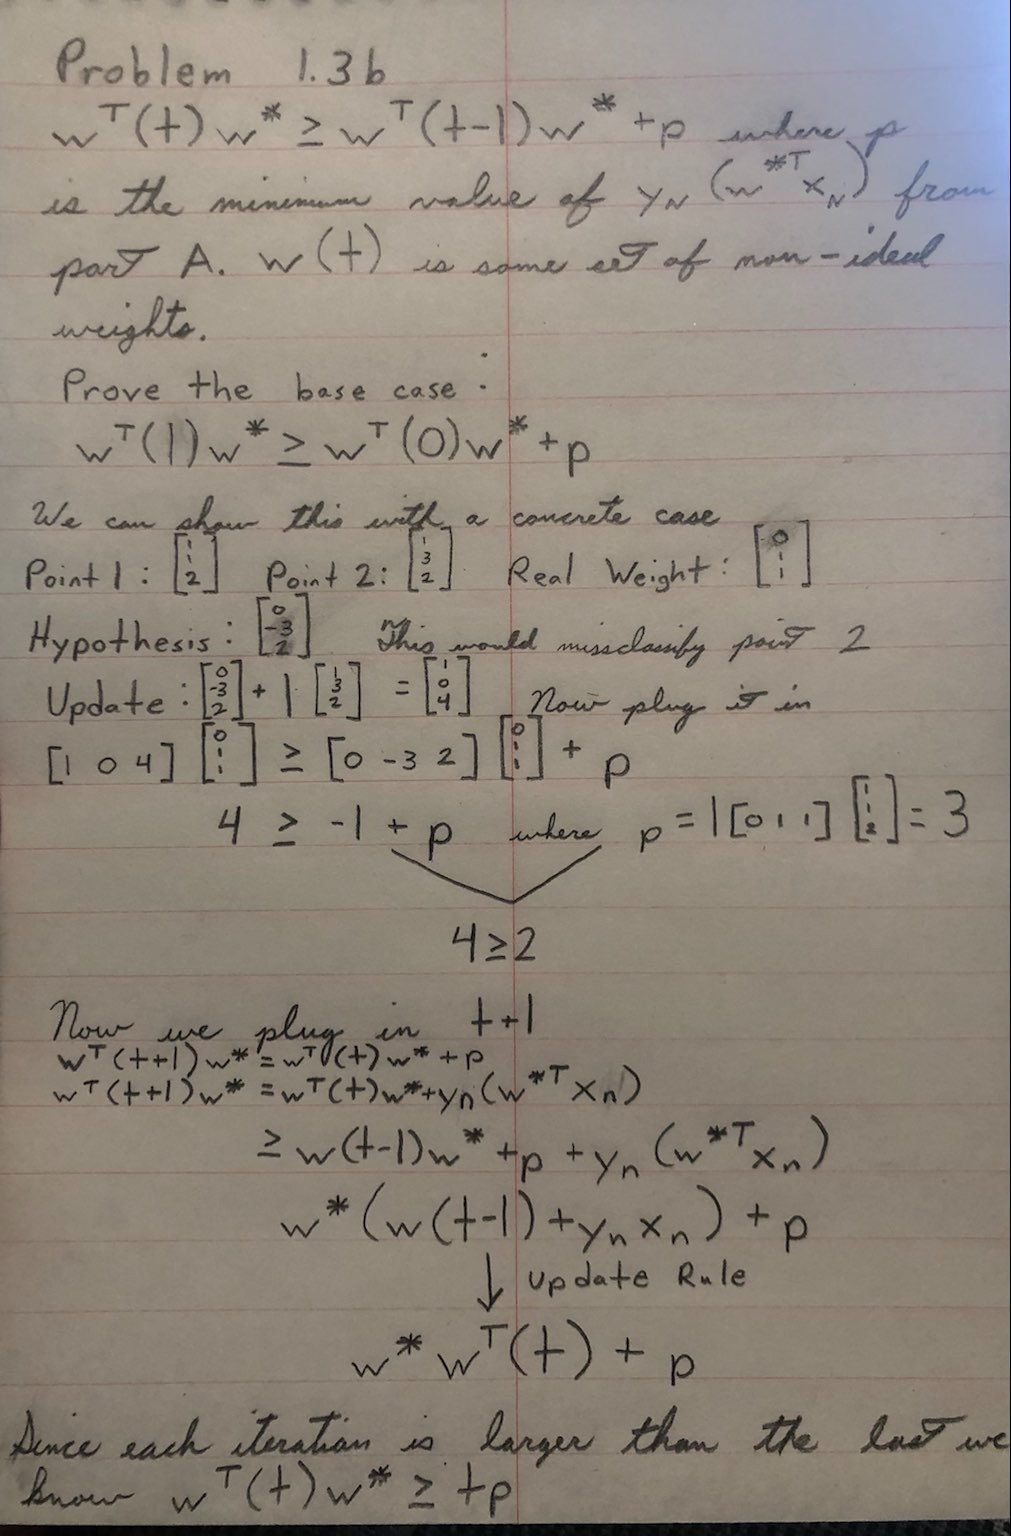 Problem 1.3b
w^T(t)w* ≥ w^T(t-1)w* + p where p
is the minimum value of y_N(w*^T x_N) from
part A. w(t) is some set of non-ideal
weights.
Prove the base case :
w^T(1)w* ≥ w^T(0)w* + p
We can show this with a concrete case
Point 1 : [1 1 2] Point 2: [1 3 2] Real Weight : [0 1 1]
Hypothesis : [0 -3 2] This would missclassify point 2
Update : [0 -3 2] + 1 [1 3 2] = [1 0 4] Now plug it in
[1 0 4] [0 1 1] ≥ [0 -3 2] [0 1 1] + p
4 ≥ -1 + p where p = 1[0 1 1] [1 1 2] = 3
4 ≥ 2
Now we plug in t+1
w^T(t+1)w* = w^T(t)w* + p
w^T(t+1)w* = w^T(t)w* + y_n(w*^T x_n)
≥ w(t-1)w* + p + y_n(w*^T x_n)
w*(w(t-1) + y_n x_n) + p
↓ Update Rule
w* w^T(t) + p
Since each iteration is larger than the last we
know w^T(t)w* ≥ tp